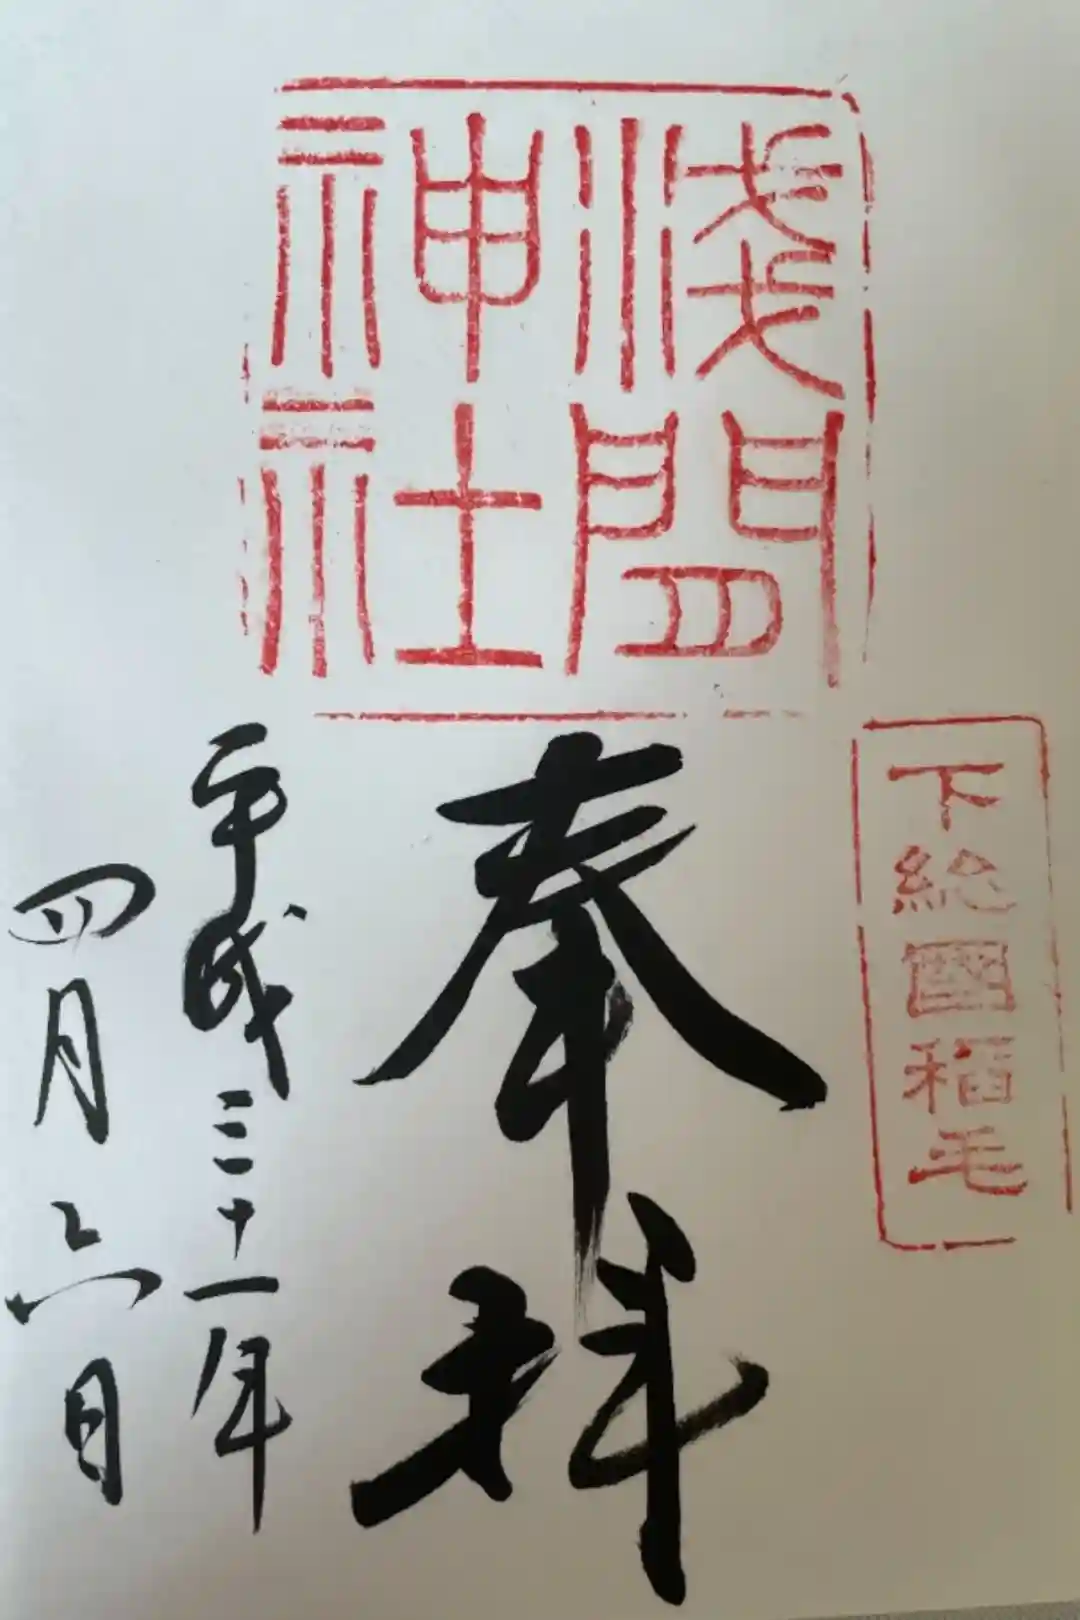 下総國稲毛
浅間
神社
奉拝
平成三十一年
四月六日